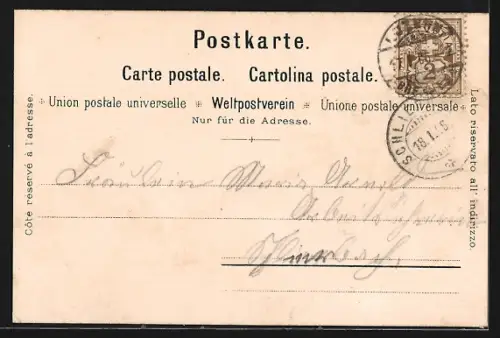 Postkarte.
Carte postale. Cartolina postale.
Union postale universelle ✳ Weltpostverein ✳ Unione postale universale
Nur für die Adresse.
Côte reservé à l'adresse.
Lato riservato all' indirizzo.
2
18.I.
Fräulein Maria